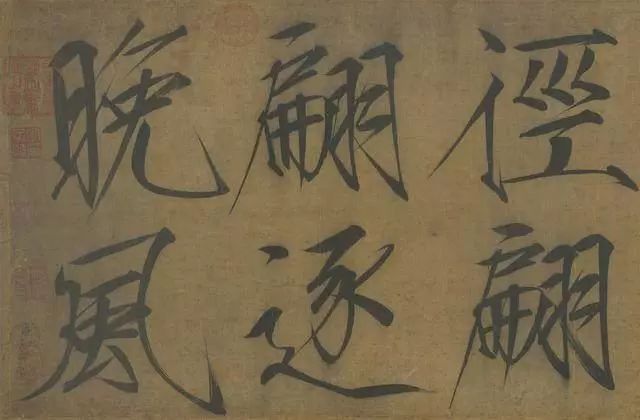 徑翩
翩逐
晚風